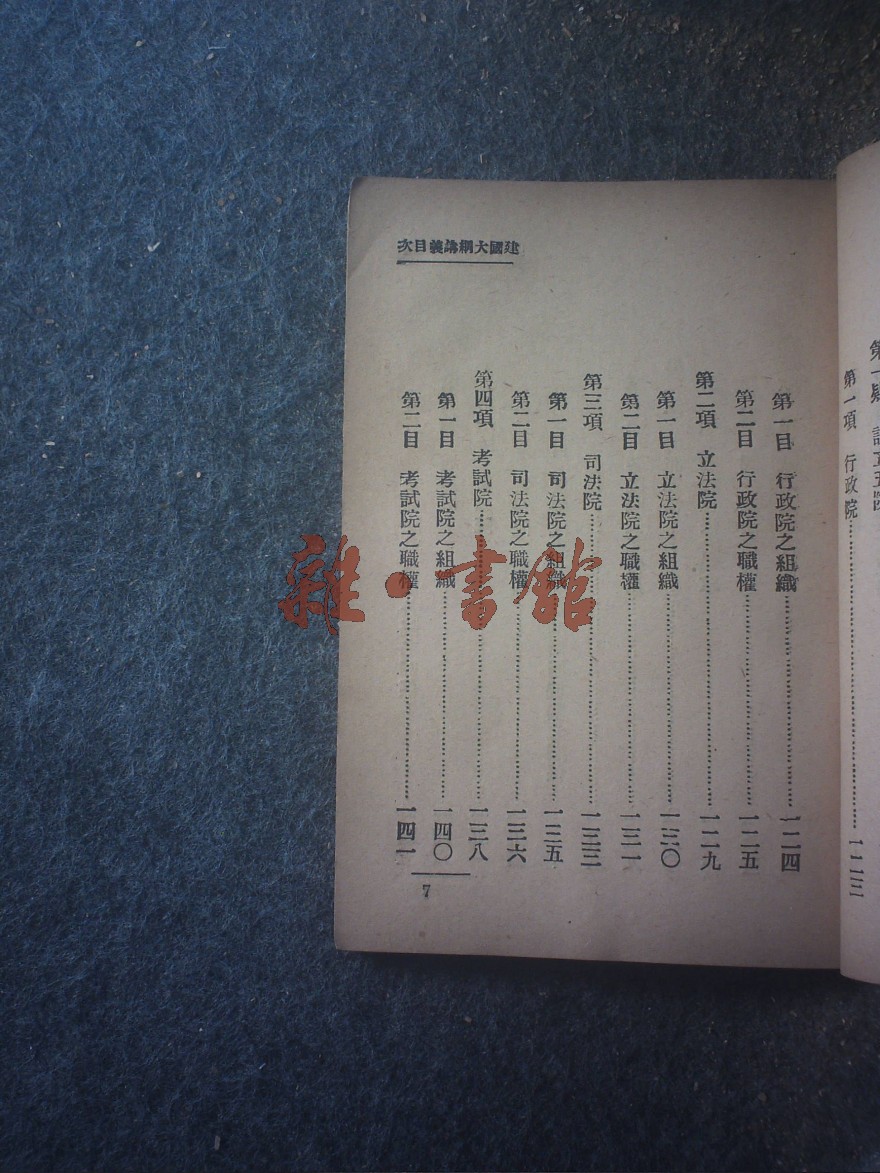 第一項 行政院…………一二三
建國大綱講義目次
第一目 行政院之組織…………一二四
第二目 行政院之職權…………一二五
第二項 立法院…………一二九
第一目 立法院之組織…………一三〇
第二目 立法院之職權…………一三一
第三項 司法院…………一三三
第一目 司法院之組織…………一三五
第二目 司法院之職權…………一三六
第四項 考試院…………一三八
第一目 考試院之組織…………一四〇
第二目 考試院之職權…………一四一
7
雜·書館